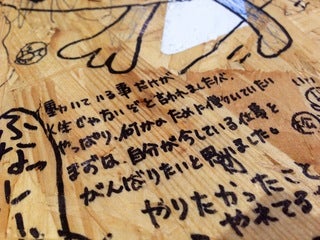 働いている事だけが
人生じゃないぞと言われましたが、
やっぱり、何かのために働いていたい
まずは、自分が今している仕事を
がんばりたいと思いました。
やりたかったこと
やれてる